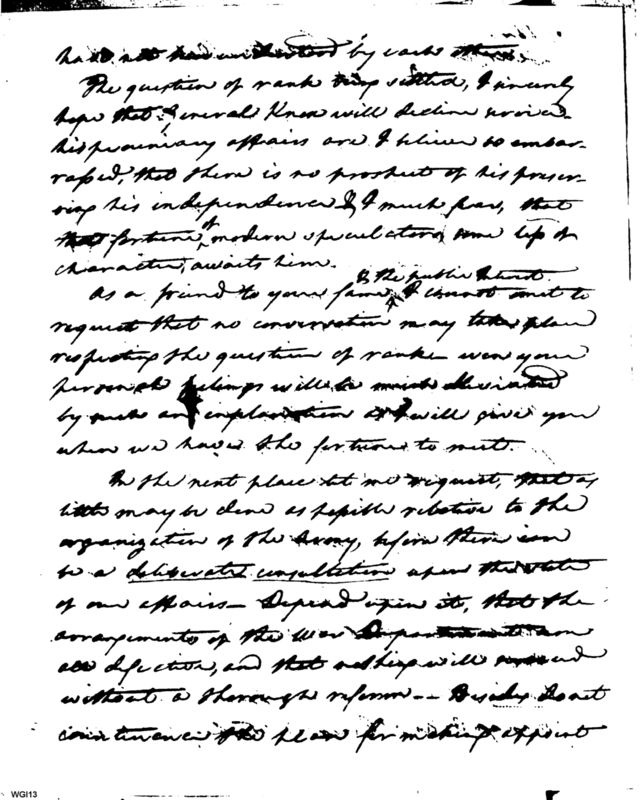 had not been understood by each other.
The question of rank being settled, I sincerely
hope that General Knox will decline service.
his pecuniary affairs are I believe so embar-
rassed, that there is no prospect of his preser-
ving his independence & I much fear, that
fortune of modern speculators some loss of
character, awaits him.
& the public Interest
As a friend to your fame, I cannot omit to
request that no conversation may take place
respecting the question of rank even your
personal feelings will be much alleviated
by such an explanation as I will give you
when we have the fortune to meet.
In the next place let me request, that as
little may be done as possible relative to the
organization of the Army, before there can
be a deliberate consultation upon the state
of our affairs — Depend upon it, that the
arrangements of the War Department are
all defective, and that nothing will succeed
without a thorough reform — Besides do not
countenance the plan for making appoint
WGI13